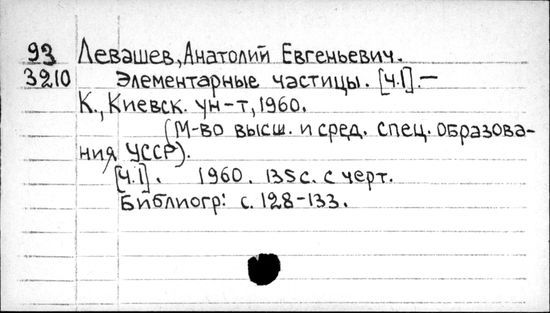 93 Левашев, Анатолий Евгеньевич.
3210 Элементарные частицы. [Ч.I]. —
К., Киевск. ун-т, 1960.
(М-во высш. и сред. спец. образова-
ния УССР).
[Ч.I]. 1960. 135 с. с черт.
Библиогр: с. 128-133.